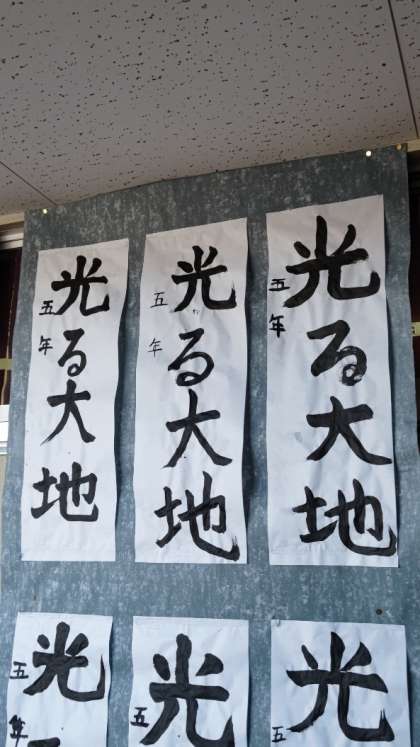 光る大地
五年
光る大地
五年
光る大地
五年
光
五
光
五
光
五年